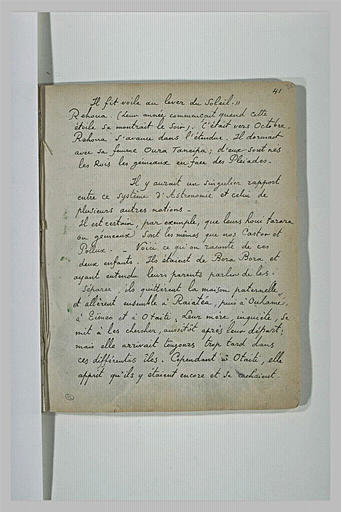 41
Il fit voile au lever du Soleil. "
Rehoua. (Leur année commençait quand cette
étoile se montrait le soir). C'était vers Octobre.
Rehoua s'avance dans l'étendue. Il dormait
avec sa femme Oura Taneipa; d'eux sont nés
les Rois les gémeaux en face des Pleiades.
Il y aurait un singulier rapport
entre ce système d'Astronomie et celui de
plusieurs autres nations.
Il est certain, par exemple, que leurs houi Tarara
ou gemeaux sont les mêmes que nos Castor et
Pollux. - Voici ce qu'on raconte de ces
deux enfants. Ils étaient de Bora Bora et
ayant entendu leurs parents parler de les
séparer, ils quittèrent la maison paternelle
et allèrent ensemble à Raiatéa, puis à Ouhamé,
à Eimeo et à Otaïti. Leur mère, inquiète, se
mit à les chercher, aussitôt après leur départ;
mais elle arrivait toujours trop tard dans
ces différentes îles. Cependant à Otaïti, elle
apprit qu'ils y étaient encore et se cachaient